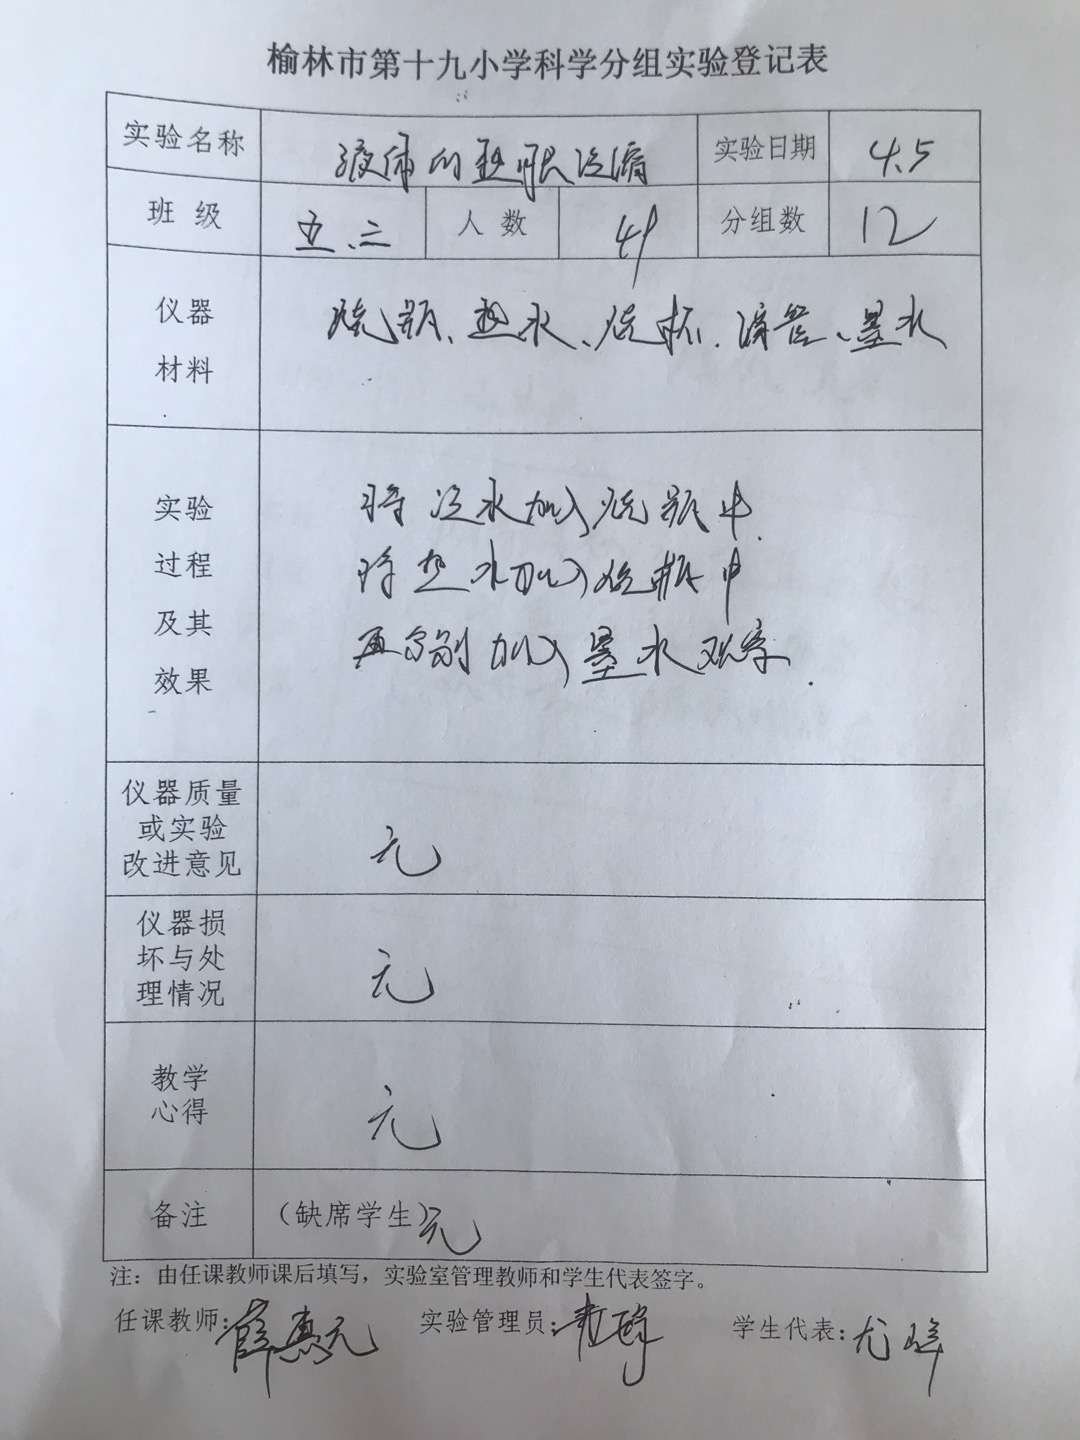 榆林市第十九小学科学分组实验登记表
实验名称 液体的热胀冷缩 实验日期 4.5
班级 五.二 人数 49 分组数 12
仪器 烧瓶、热水、烧杯、滴管、墨水
材料
实验 将冷水加入烧瓶中.
过程 将热水加入烧瓶中
及其 再分别加入墨水观察.
效果
仪器质量
或实验 无
改进意见
仪器损
坏与处 无
理情况
教学
心得 无
备注 (缺席学生)无
注：由任课教师课后填写，实验室管理教师和学生代表签字。
任课教师：薛惠元 实验管理员： 学生代表：尤